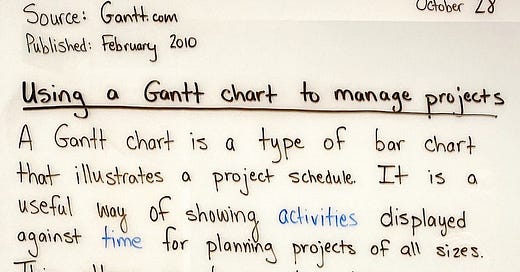 Source: Gantt.com
October 28
Published: February 2010
Using a Gantt chart to manage projects
A Gantt chart is a type of bar chart
that illustrates a project schedule. It is a
useful way of showing activities displayed
against time for planning projects of all sizes.